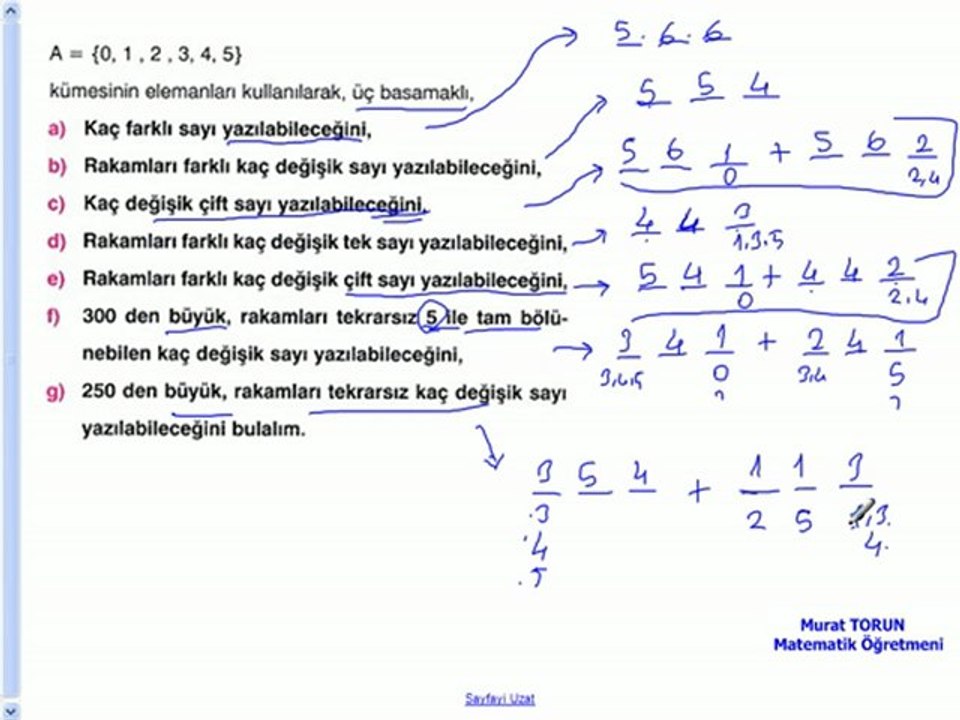 A = {0, 1 , 2 , 3, 4, 5}
kümesinin elemanları kullanılarak, üç basamaklı,
a) Kaç farklı sayı yazılabileceğini,
b) Rakamları farklı kaç değişik sayı yazılabileceğini,
c) Kaç değişik çift sayı yazılabileceğini,
d) Rakamları farklı kaç değişik tek sayı yazılabileceğini,
e) Rakamları farklı kaç değişik çift sayı yazılabileceğini,
f) 300 den büyük, rakamları tekrarsız 5 ile tam bölü-
nebilen kaç değişik sayı yazılabileceğini,
g) 250 den büyük, rakamları tekrarsız kaç değişik sayı
yazılabileceğini bulalım.
5 . 6 . 6
5 5 4
5 6 1 + 5 6 2
0 2,4
4 4 3
1,3,5
5 4 1 + 4 4 2
0 2,4
3 4 1 + 2 4 1
3,4,5 0 3,4 5
3 5 4 + 1 1 3
.3 2 5 3.
.4 4.
.5
Murat TORUN
Matematik Öğretmeni
Sayfayi Uzat